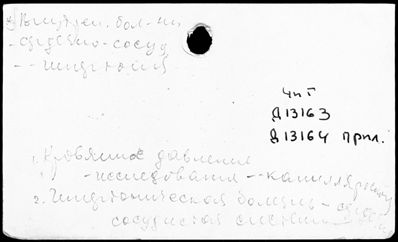 3) Внутрен. бол-ни
- сердечно-сосуд
-- гипертония
Чит
Д 13163
Д 13164 прил.
1. Кровяное давление
- исследование -- капиллярного
2. Гипертоническая болезнь -
сосудистая система